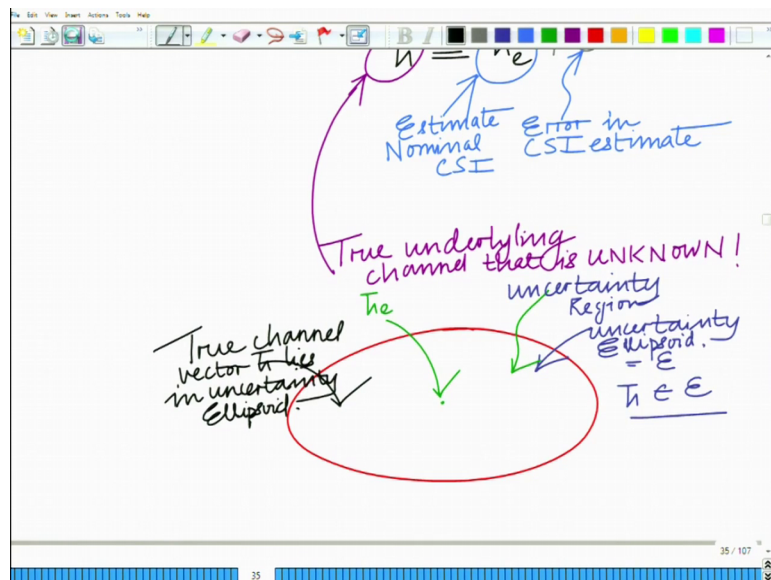 File Edit View Insert Actions Tools Help
B I
h = he +
Estimate
Nominal
CSI
Error in
CSI estimate
True underlying
channel that is UNKNOWN!
he
uncertainty
Region
uncertainty
Ellipsoid.
= ε
h ∈ ε
True channel
vector h lies
in uncertainty
Ellipsoid.
35 / 107
35